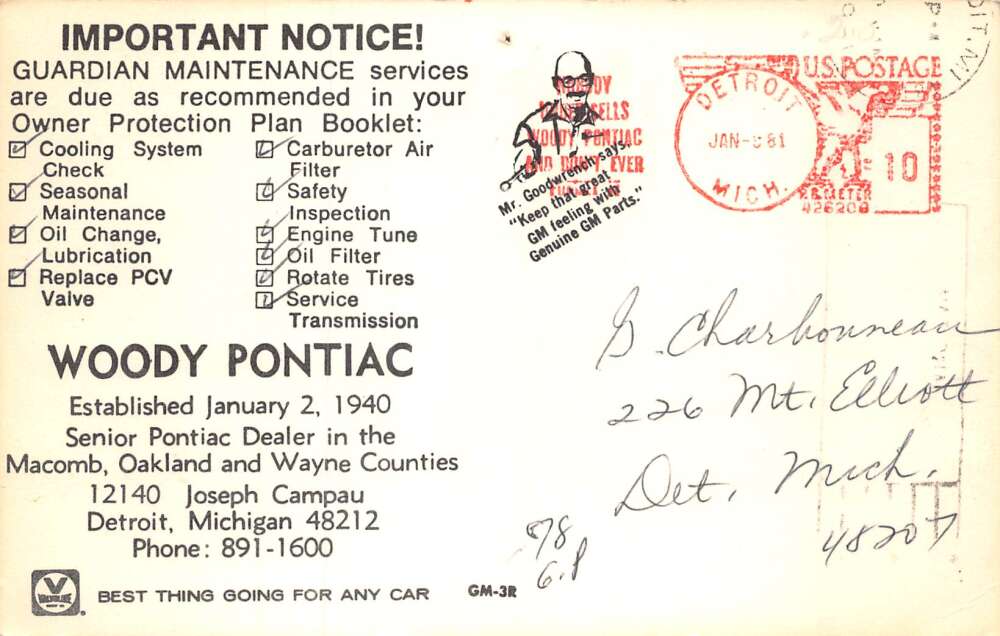 IMPORTANT NOTICE!
GUARDIAN MAINTENANCE services
are due as recommended in your
Owner Protection Plan Booklet:
Cooling System
Check
Seasonal
Maintenance
Oil Change,
Lubrication
Replace PCV
Valve
Carburetor Air
Filter
Safety
Inspection
Engine Tune
Oil Filter
Rotate Tires
Service
Transmission
WOODY PONTIAC
Established January 2, 1940
Senior Pontiac Dealer in the
Macomb, Oakland and Wayne Counties
12140 Joseph Campau
Detroit, Michigan 48212
Phone: 891-1600
VALVOLINE
BEST THING GOING FOR ANY CAR
GM-3R
SELLS
WOODY PONTIAC
AND DON'T EVER
Mr. Goodwrench says,
"Keep that great
GM feeling with
Genuine GM Parts."
DETROIT
JAN-6 81
MICH.
U.S. POSTAGE
10
P.B. METER
426208
G. Charbonneau
226 Mt. Elliott
Det, Mich.
48207
78